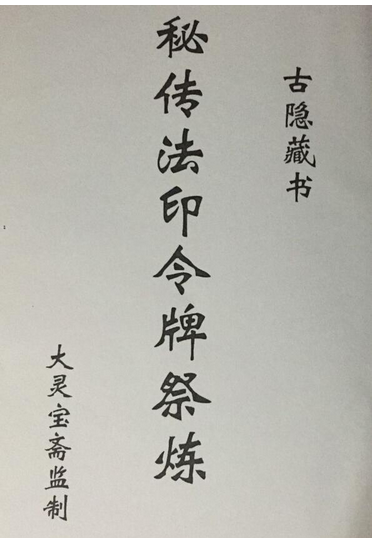 古隐藏书
秘传法印令牌祭炼
大灵宝斋监制